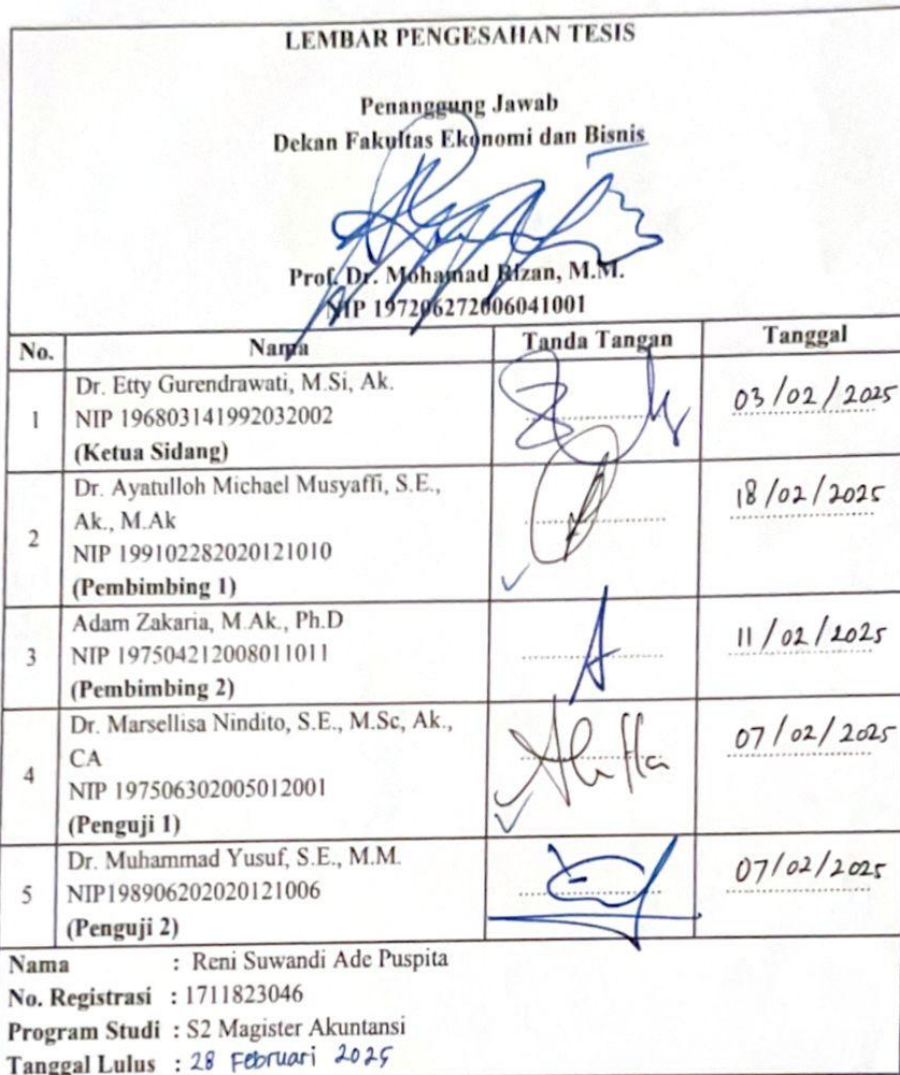 LEMBAR PENGESAHAN TESIS
Penanggung Jawab
Dekan Fakultas Ekonomi dan Bisnis
Prof. Dr. Mohamad Rizan, M.M.
NIP 197206272006041001
No. Nama Tanda Tangan Tanggal
1 Dr. Etty Gurendrawati, M.Si, Ak.
NIP 196803141992032002
(Ketua Sidang)
03/02/2025
2 Dr. Ayatulloh Michael Musyaffi, S.E.,
Ak., M.Ak
NIP 199102282020121010
(Pembimbing 1)
18/02/2025
3 Adam Zakaria, M.Ak., Ph.D
NIP 197504212008011011
(Pembimbing 2)
11/02/2025
4 Dr. Marsellisa Nindito, S.E., M.Sc, Ak.,
CA
NIP 197506302005012001
(Penguji 1)
07/02/2025
5 Dr. Muhammad Yusuf, S.E., M.M.
NIP198906202020121006
(Penguji 2)
07/02/2025
Nama : Reni Suwandi Ade Puspita
No. Registrasi : 1711823046
Program Studi : S2 Magister Akuntansi
Tanggal Lulus : 28 Februari 2025